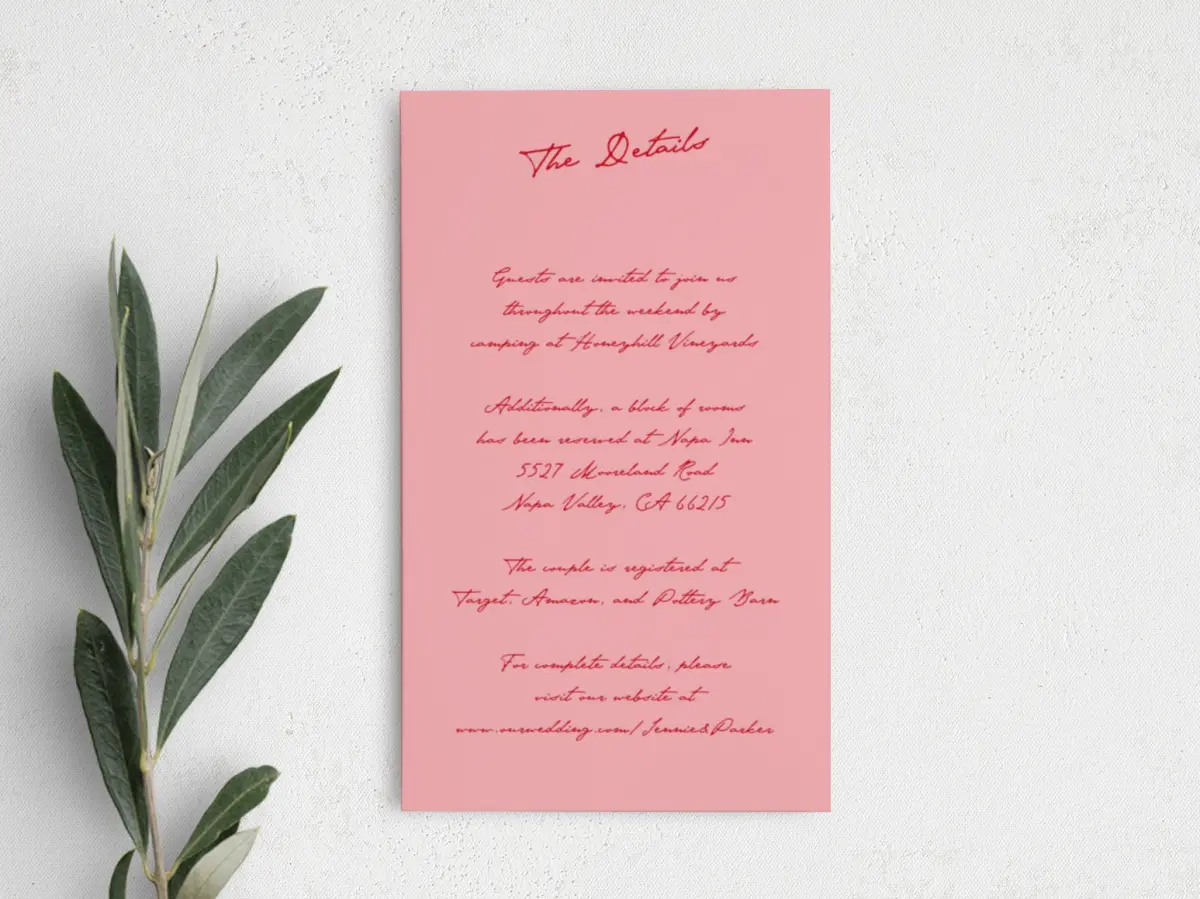 The Details
Guests are invited to join us
throughout the weekend by
camping at Honeyhill Vineyards
Additionally, a block of rooms
has been reserved at Napa Inn
5527 Mooreland Road
Napa Valley, CA 66215
The couple is registered at
Target, Amazon, and Pottery Barn
For complete details, please
visit our website at
www.ourwedding.com/Jennie&Parker